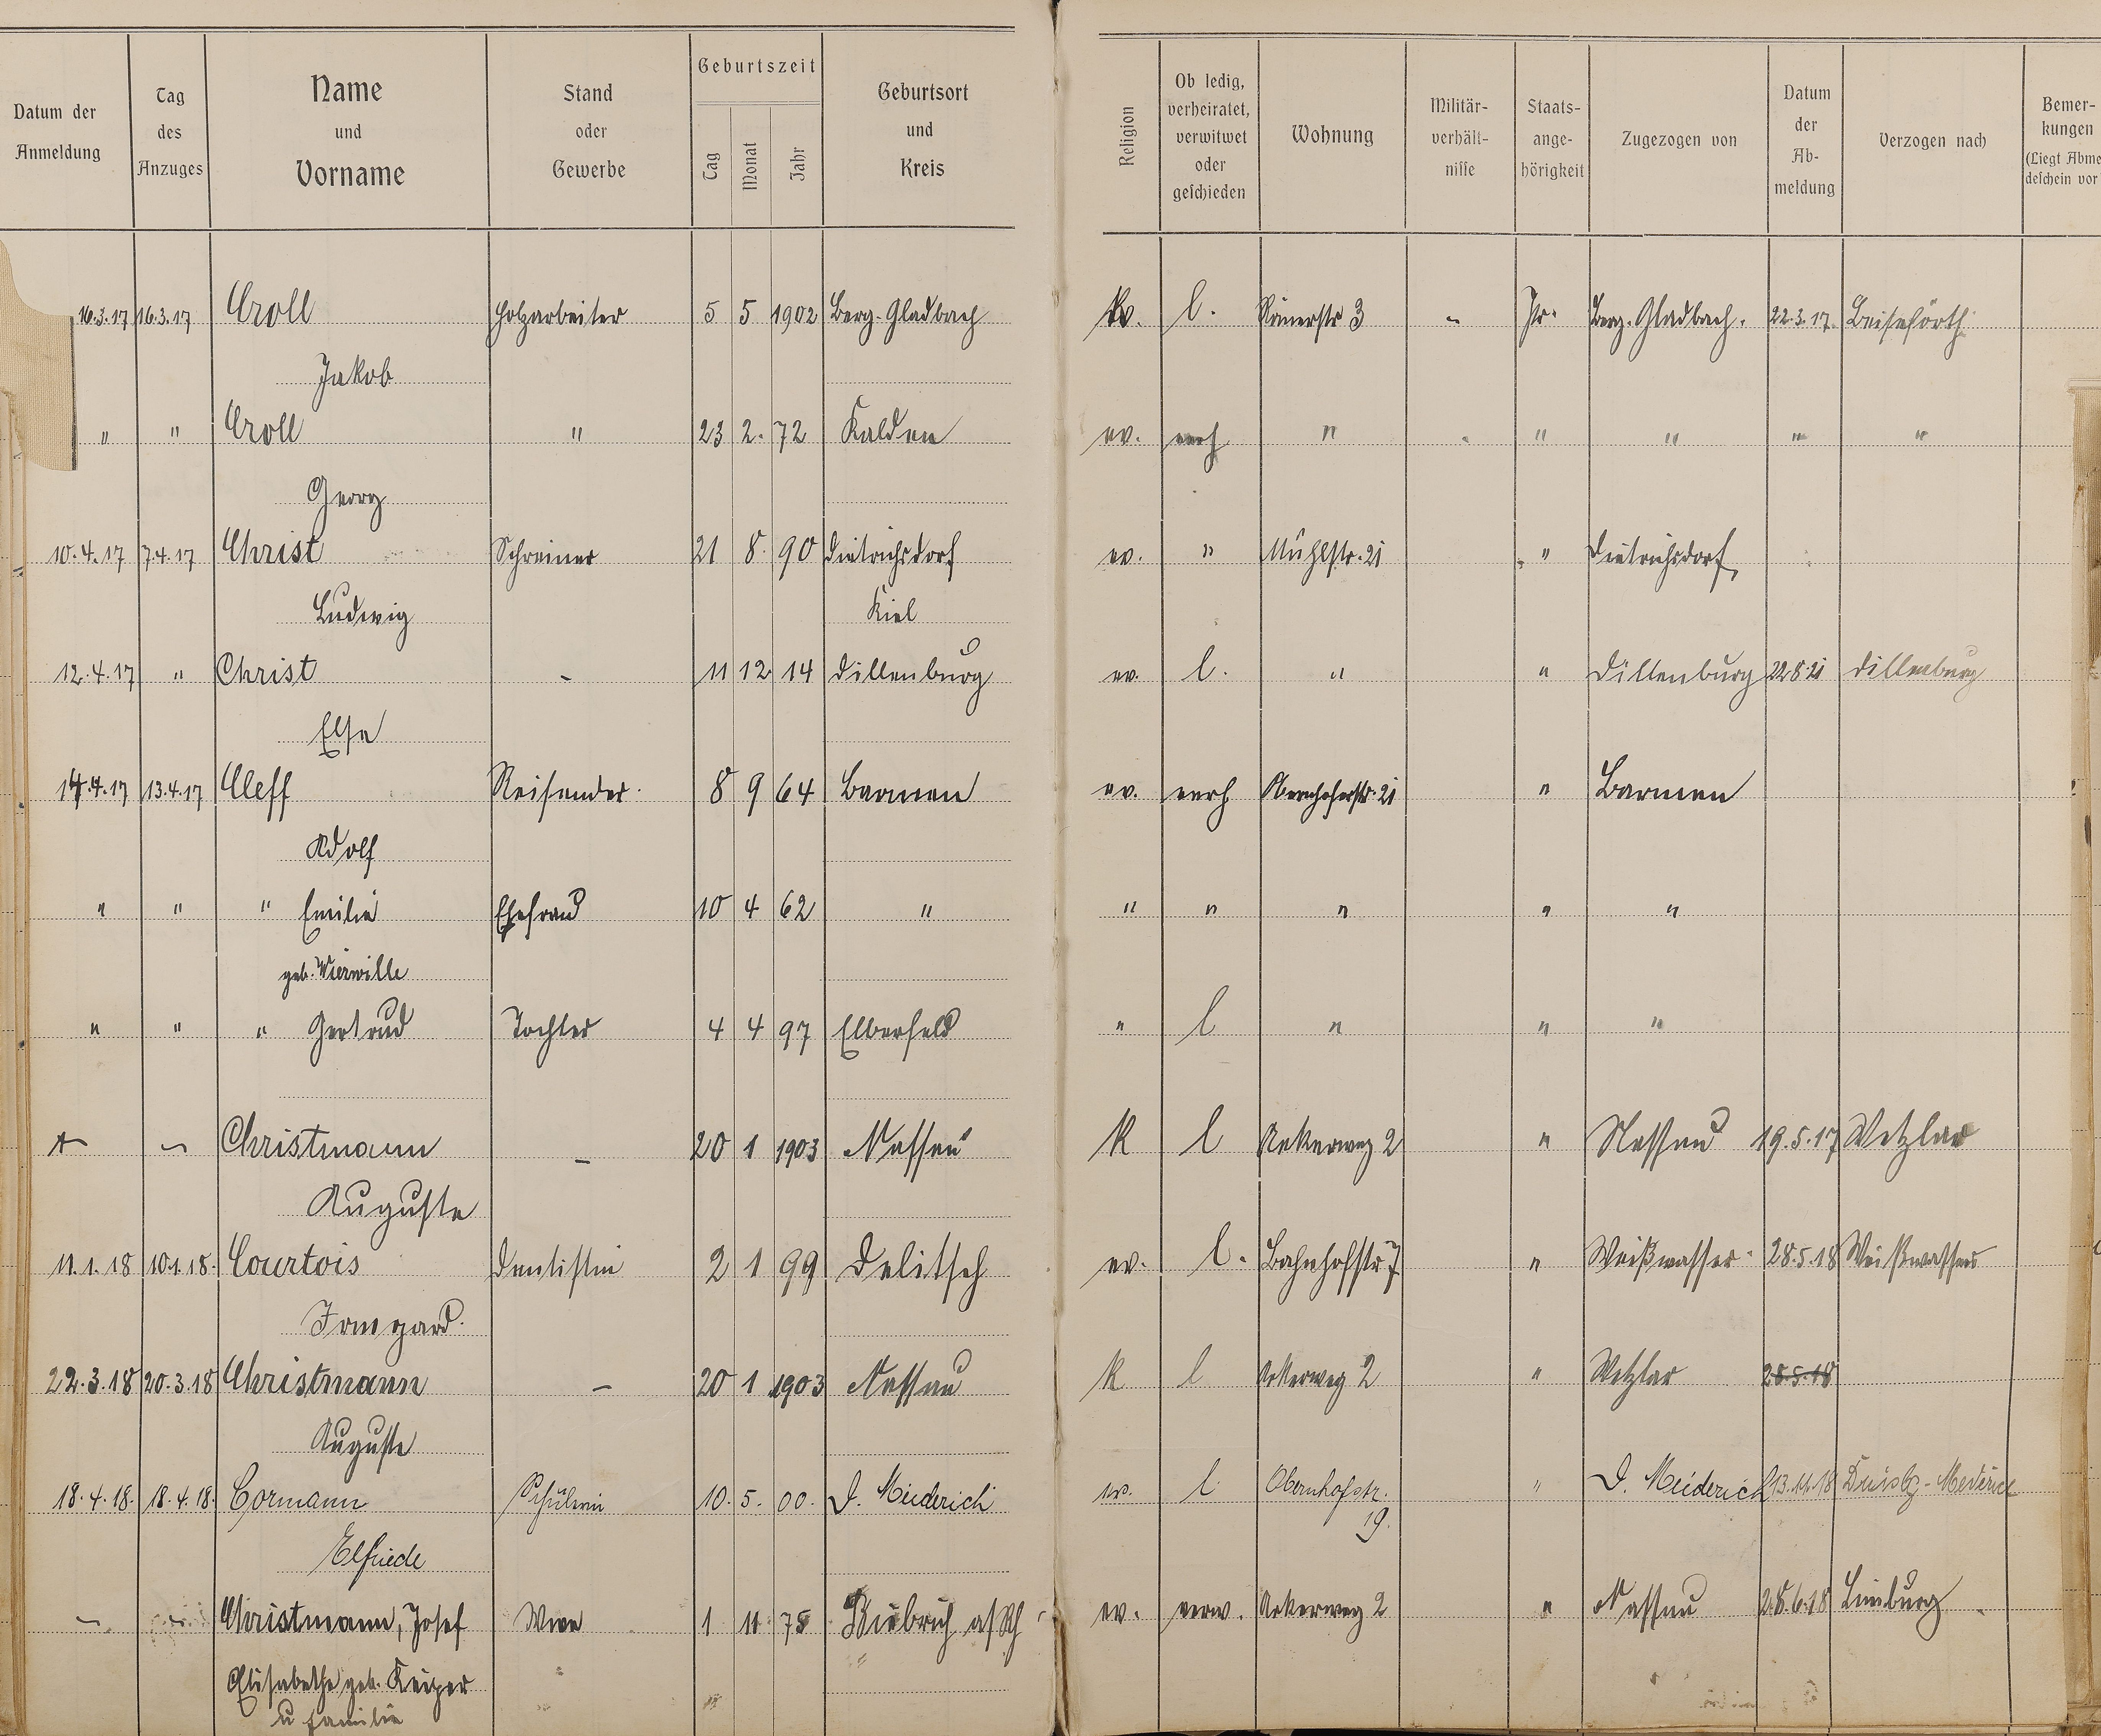 Datum der Anmeldung | Tag des Anzuges | Name und Vorname | Stand oder Gewerbe | Geburtszeit Tag Monat Jahr | Geburtsort und Kreis | Religion | Ob ledig, verheiratet, verwitwet oder geschieden | Wohnung | Militär-verhält-nisse | Staats-ange-hörigkeit | Zugezogen von | Datum der Ab-meldung | Verzogen nach | Bemer-kungen (Liegt Abme deschein vor
16.3.17 16.3.17 Croll Holzarbeiter 5 5 1902 Berg. Gladbach ev. l. Römerstr 3 - Pr. Berg. Gladbach. 22.3.17. Beiseförth
Jakob
" " Croll " 23 2. 72 Kalden ev. verh " " " " "
Georg
10.4.17 7.4.17 Christ Schreiner 21 8. 90 Dietrichsdorf ev. " Mühlstr. 21 " Dietrichsdorf
Ludwig Kiel
12.4.17 " Christ - 11 12 14 Dillenburg ev. l. " " Dillenburg 22.8.21 Dillenburg
Else
14.4.17 13.4.17 Cleff Reisender. 8 9 64 Barmen ev. verh Obernhoferstr. 21 " Barmen
Adolf
" " " Emilie Ehefrau 10 4 62 " " " " " "
geb. Vierwille
" " " Gertrud Tochter 4 4 97 Elberfeld " l " " "
- Christmann - 20 1 1903 Nassau k l Ackerweg 2 " Nassau 19.5.17 Wetzlar
Auguste
11.1.18 10.1.18. Courtois Dentistin 2 1 99 Delitsch ev. l. Bahnhofstr 7 " Weißwasser 28.5.18 Weißwasser
Irmgard.
22.3.18 20.3.18 Christmann - 20 1 1903 Nassau k l Ackerweg 2 " Wetzlar 28.5.18
Auguste
18.4.18. 18.4.18. Cormann Schülerin 10. 5. 00. D. Meiderich ev. l Obernhofstr. " D. Meiderich 13.11.18 Duisbg-Mederich
19.
Elfriede
- - Christmann, Josef Wwe 1 11 75 Biebrich a/Rh ev. verw. Ackerweg 2 " Nassau 28.6.18 Limburg
Elisabethe geb. Keiper
u Familie